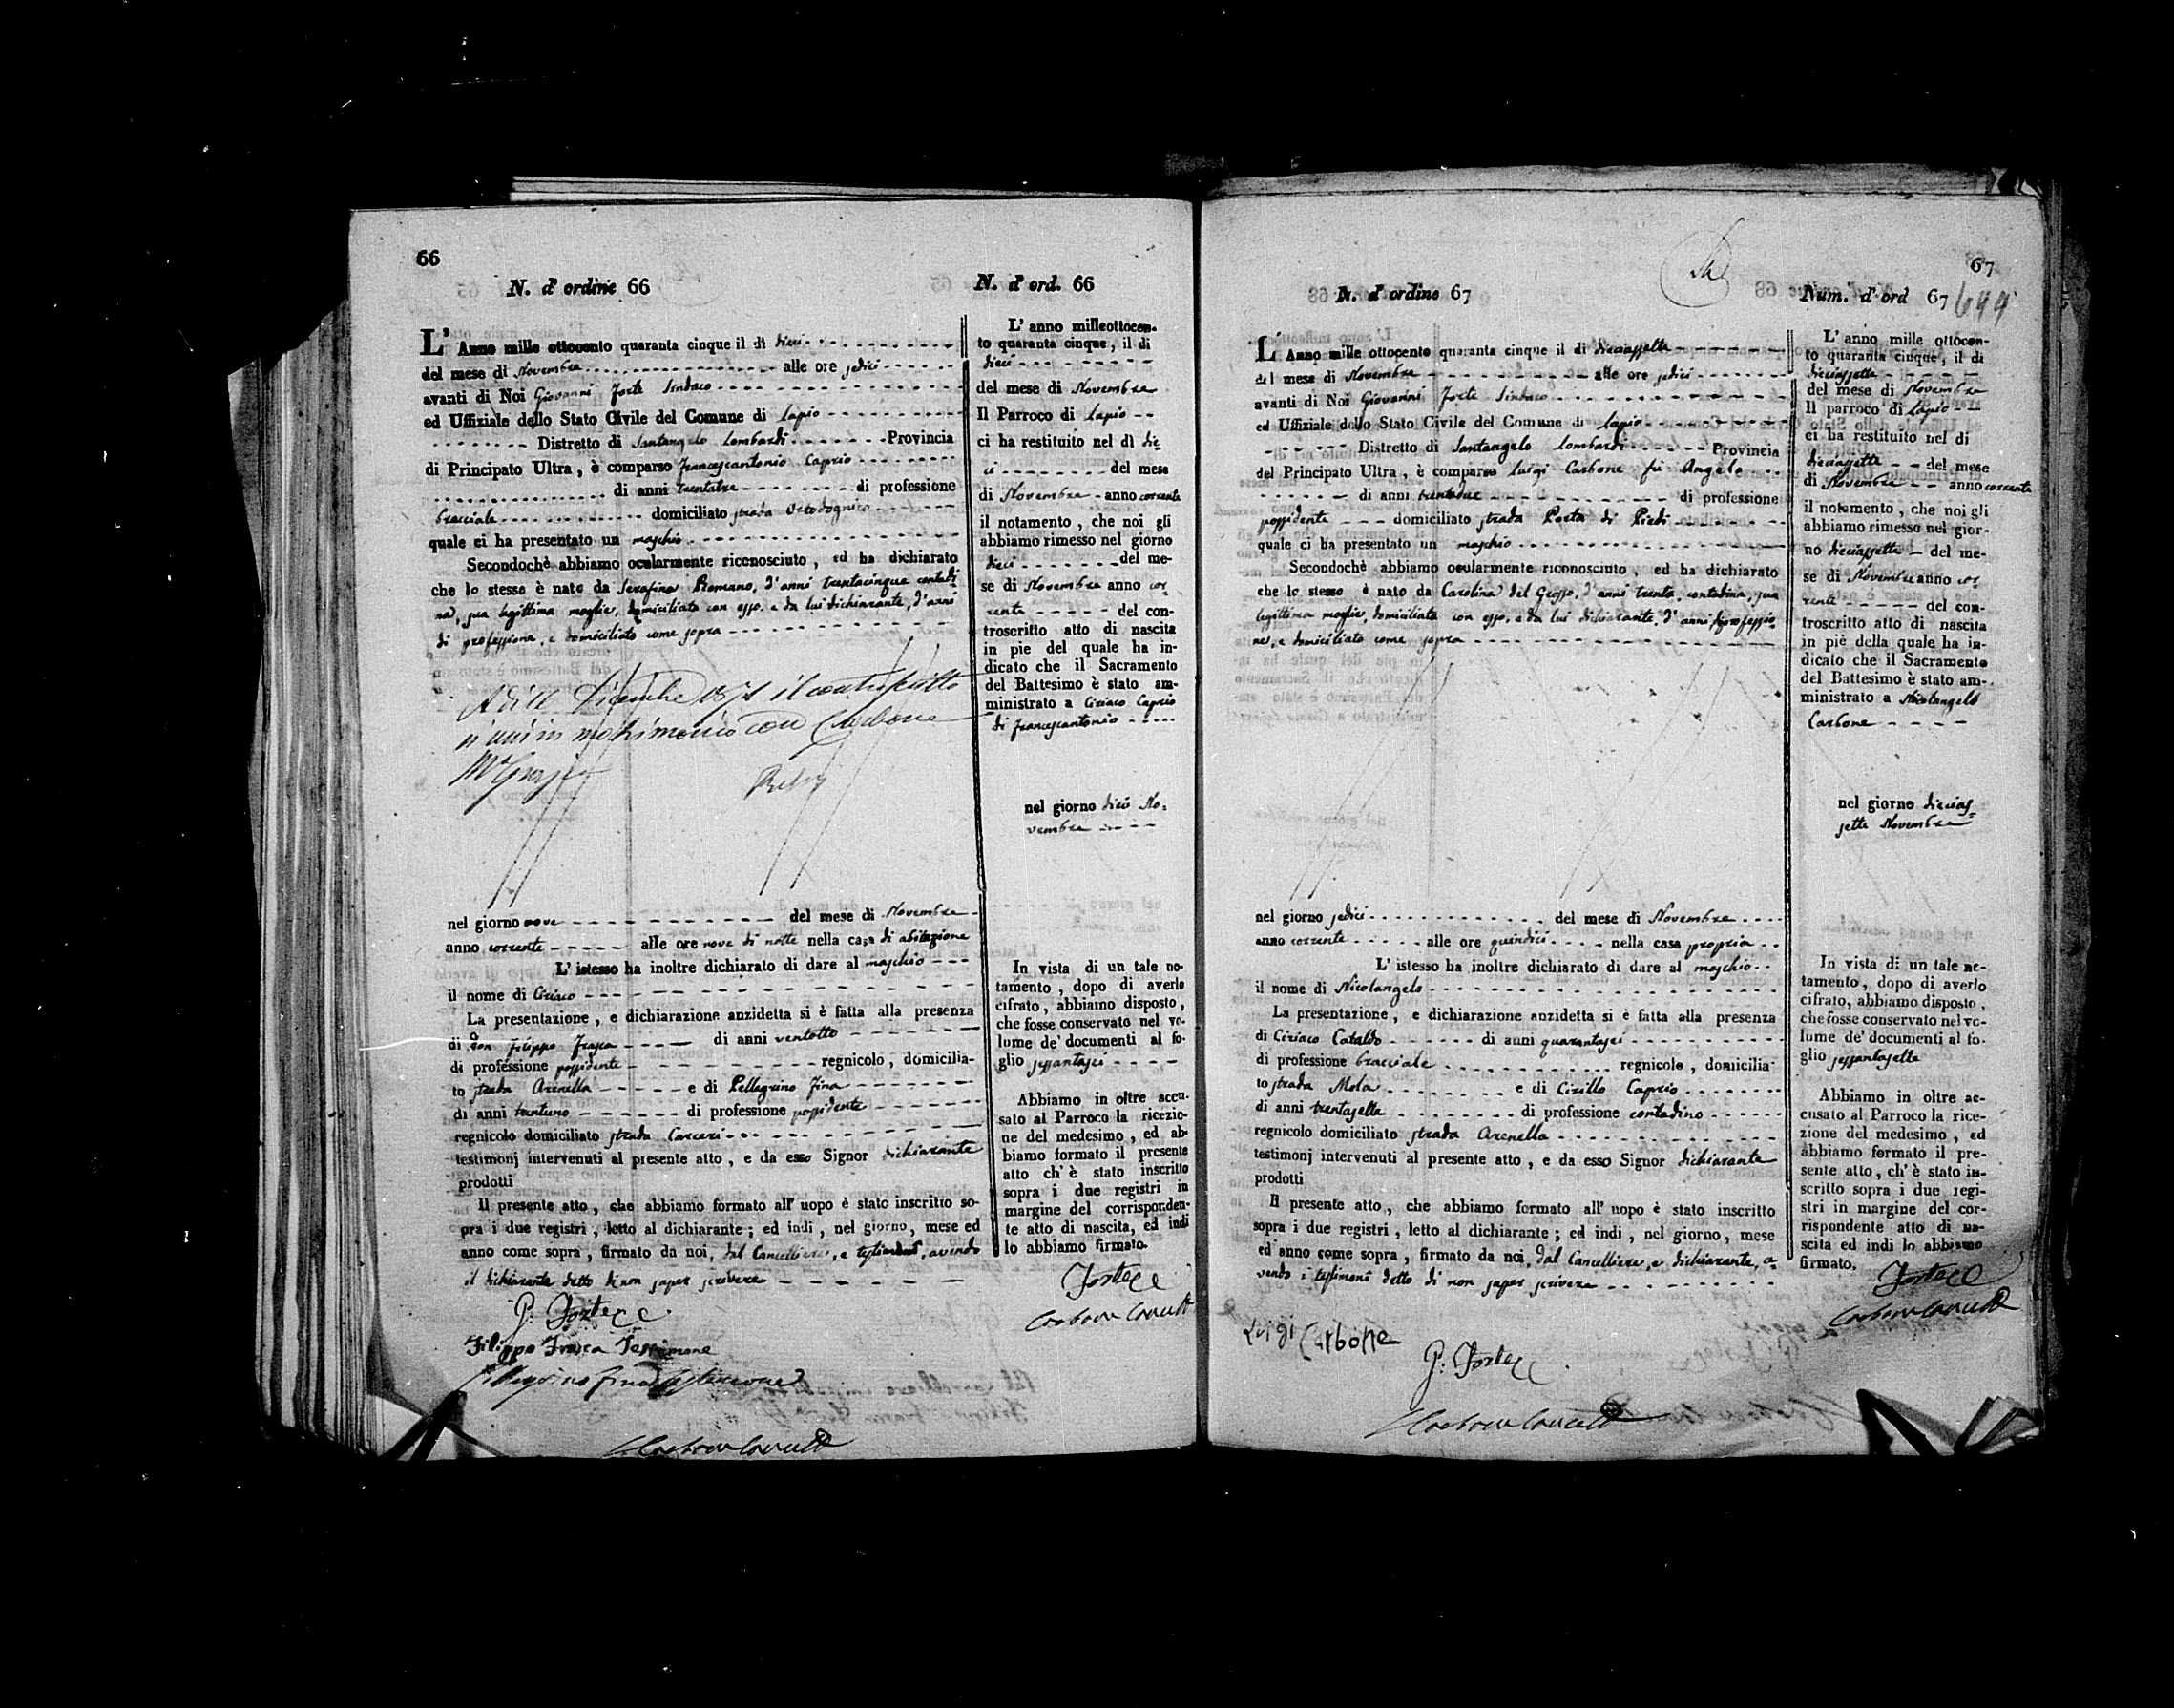 66
N. d' ordine 66
L' Anno mille ottocento quaranta cinque il di dieci
del mese di Novembre alle ore sedici
avanti di Noi Giovanni Forte Sindaco
ed Uffiziale dello Stato Civile del Comune di Lapio
Distretto di Santangelo Lombardi Provincia
di Principato Ultra, è comparso Francescantonio Caprio
di anni trentatre di professione
bracciale domiciliato strada
quale ci ha presentato un maschio
Secondochè abbiamo ocularmente riconosciuto, ed ha dichiarato
che lo stesso è nato da Serafina Romano, d'anni trentacinque contadi
na, sua legittima moglie, domiciliata con esso, e da lui dichiarante, d'anni
di professione, e domiciliato come sopra
Dicembre il controscritto
si unì in matrimonio con Carbone
Mª Grazia
nel giorno nove del mese di Novembre
anno corrente alle ore nove di notte nella casa di abitazione
L' istesso ha inoltre dichiarato di dare al maschio
il nome di Ciriaco
La presentazione, e dichiarazione anzidetta si è fatta alla presenza
di Don Filippo Frasca di anni ventotto
di professione possidente regnicolo, domicilia-
to strada Arenella e di Pellegrino Fina
di anni trentuno di professione possidente
regnicolo domiciliato strada Carceri
testimonj intervenuti al presente atto, e da esso Signor dichiarante
prodotti
Il presente atto, che abbiamo formato all' uopo è stato inscritto so-
pra i due registri, letto al dichiarante; ed indi, nel giorno, mese ed
anno come sopra, firmato da noi, dal Cancelliere, e testimoni, avendo
il dichiarante detto di non saper scrivere
G: Forte
Filippo Frasca Testimone
Pellegrino Fina Testimone
Carbone Cancell
N. d' ord. 66
L' anno milleottocen-
to quaranta cinque, il di
dieci
del mese di Novembre
Il Parroco di Lapio
ci ha restituito nel dì die
ci del mese
di Novembre anno corrente
il notamento, che noi gli
abbiamo rimesso nel giorno
dieci del me-
se di Novembre anno cor
rente del con-
troscritto atto di nascita
in pie del quale ha in-
dicato che il Sacramento
del Battesimo è stato am-
ministrato a Ciriaco Caprio
di Francescantonio
nel giorno dieci No-
vembre
In vista di un tale no-
tamento, dopo di averlo
cifrato, abbiamo disposto,
che fosse conservato nel vo-
lume de' documenti al fo-
glio sessantasei
Abbiamo in oltre accu-
sato al Parroco la ricezio-
ne del medesimo, ed ab-
biamo formato il presente
atto ch' è stato inscritto
sopra i due registri in
margine del corrisponden-
te atto di nascita, ed indi
lo abbiamo firmato.
Forte
Carbone Cancell
67
N. d' ordine 67
L' Anno mille ottocento quaranta cinque il di diciassette
del mese di Novembre alle ore sedici
avanti di Noi Giovanni Forte Sindaco
ed Uffiziale dello Stato Civile del Comune di Lapio
Distretto di Santangelo Lombardi Provincia
del Principato Ultra, è comparso Luigi Carbone fu Angelo
di anni trentadue di professione
possidente domiciliato strada Porta di Piedi
quale ci ha presentato un maschio
Secondochè abbiamo ocularmente riconosciuto, ed ha dichiarato
che lo stesso è nato da Carolina del Grosso, d'anni trenta, contadina, sua
legittima moglie, domiciliata con esso, e da lui dichiarante, d'anni, di professio
ne, e domiciliato come sopra
nel giorno sedici del mese di Novembre
anno corrente alle ore quindici nella casa propria
L' istesso ha inoltre dichiarato di dare al maschio
il nome di Nicolangelo
La presentazione, e dichiarazione anzidetta si è fatta alla presenza
di Ciriaco Cataldo di anni quarantasei
di professione bracciale regnicolo, domicilia-
to strada Mola e di Cirillo Caprio
di anni trentasette di professione contadino
regnicolo domiciliato strada Arenella
testimonj intervenuti al presente atto, e da esso Signor dichiarante
prodotti
Il presente atto, che abbiamo formato all' uopo è stato inscritto
sopra i due registri, letto al dichiarante; ed indi, nel giorno, mese
ed anno come sopra, firmato da noi, dal Cancelliere, e dichiarante, a
vendo i testimoni detto di non saper scrivere
Luigi Carbone
G: Forte
Carbone Cancell
Num. d' ord 67
644
L' anno mille ottocen-
to quaranta cinque, il di
diciassette
del mese di Novembre
Il parroco di Lapio
ci ha restituito nel di
diciassette del mese
di Novembre anno corrente
il notamento, che noi gli
abbiamo rimesso nel gior-
no diciassette del me-
se di Novembre anno cor
rente del con-
troscritto atto di nascita
in piè della quale ha in-
dicato che il Sacramento
del Battesimo è stato am-
ministrato a Nicolangelo
Carbone
nel giorno dicias
sette Novembre
In vista di un tale no-
tamento, dopo di averlo
cifrato, abbiamo disposto,
che fosse conservato nel vo-
lume de' documenti al fo-
glio sessantasette
Abbiamo in oltre ac-
cusato al Parroco la rice-
zione del medesimo, ed
abbiamo formato il pre-
sente atto, ch' è stato in-
scritto sopra i due regi-
stri in margine del cor-
rispondente atto di na-
scita ed indi lo abbiamo
firmato.
Forte
Carbone Cancell